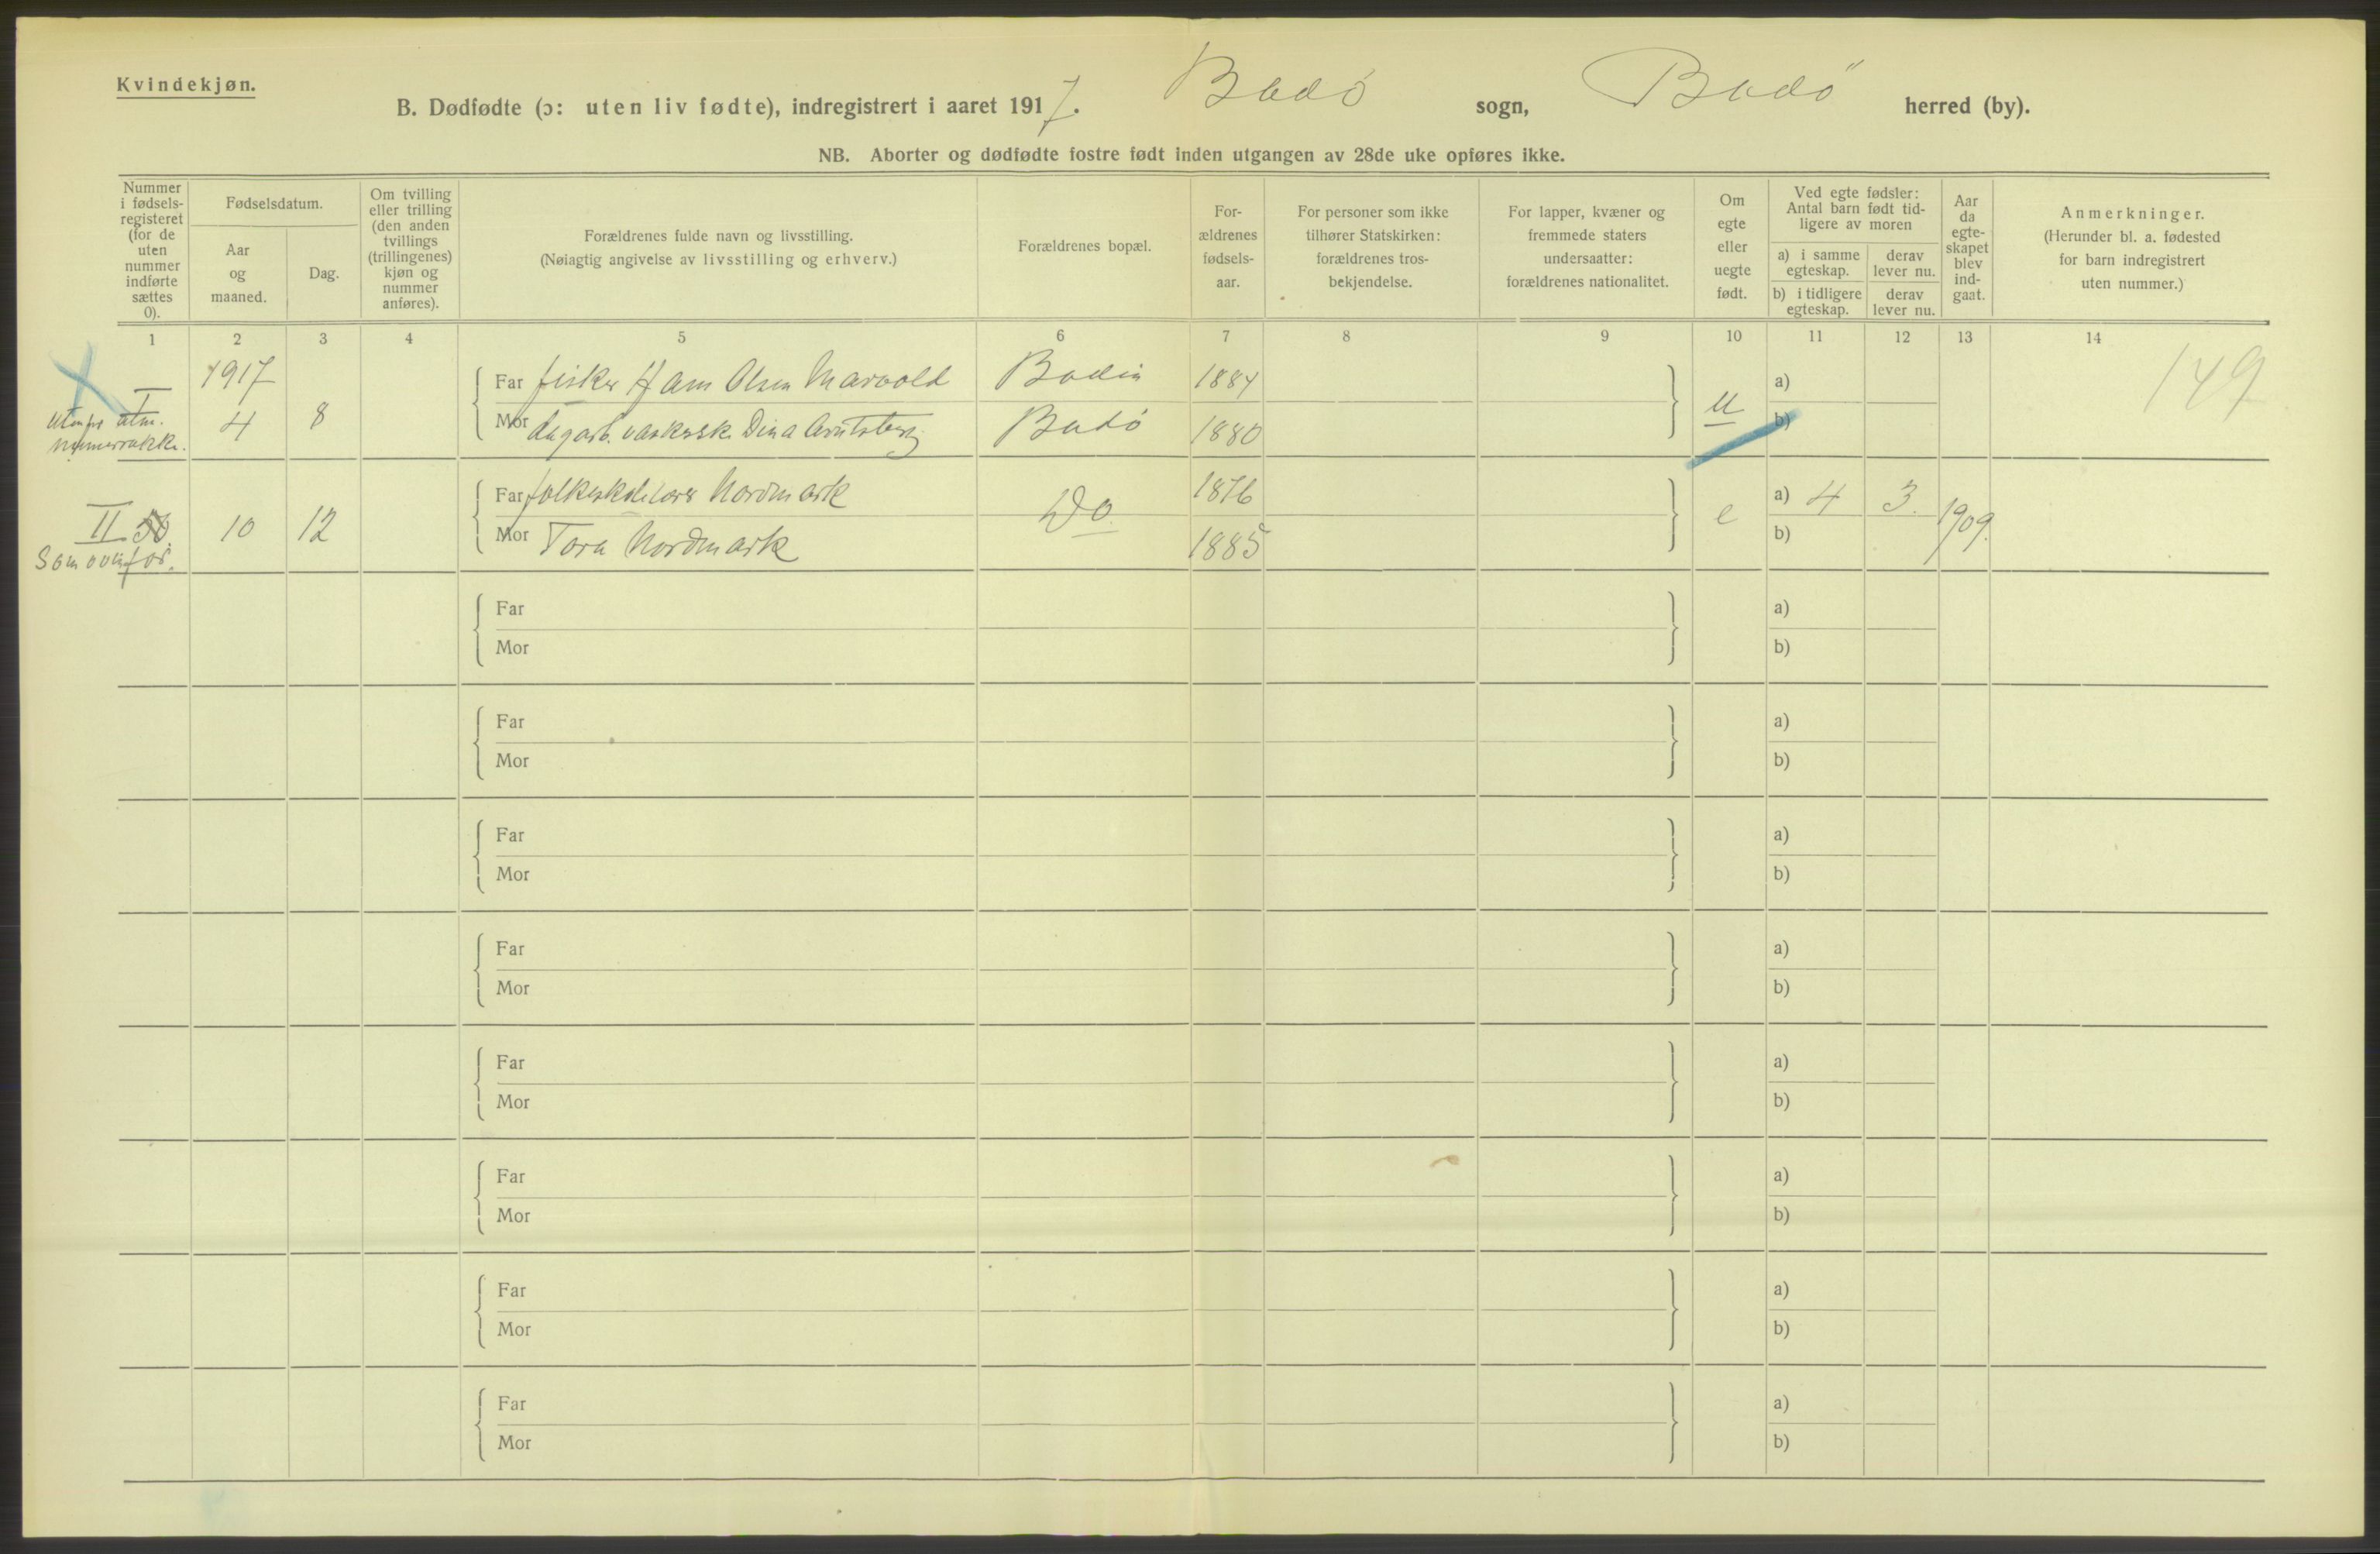 Kvindekjøn.
B. Dødfødte (ɔ: uten liv fødte), indregistrert i aaret 1917. Bodö sogn, Bodö herred (by).
NB. Aborter og dødfødte fostre født inden utgangen av 28de uke opføres ikke.
Nummer i fødsels-registeret (for de uten nummer indførte sættes 0).
Fødselsdatum.
Aar og maaned.
Dag.
Om tvilling eller trilling (den anden tvillings (trillingenes) kjøn og nummer anføres).
Forældrenes fulde navn og livsstilling.
(Nøiagtig angivelse av livsstilling og erhverv.)
Forældrenes bopæl.
For-ældrenes fødsels-aar.
For personer som ikke tilhører Statskirken: forældrenes tros-bekjendelse.
For lapper, kvæner og fremmede staters undersaatter: forældrenes nationalitet.
Om egte eller uegte født.
Ved egte fødsler: Antal barn født tid-ligere av moren
a) i samme egteskap.
derav lever nu.
b) i tidligere egteskap.
derav lever nu.
Aar da egte-skapet blev ind-gaat.
Anmerkninger.
(Herunder bl. a. fødested for barn indregistrert uten nummer.)
1 2 3 4 5 6 7 8 9 10 11 12 13 14
I 1917 Far fisker Hans Olsen Marvold Bodin 1884 a) 149
4 8 Mor Dina Bodö 1880 u b)
nummerrække.
Far folkeskolelærer Nordmark 1876 a) 4 3.
II 10 12 Do. e 1909.
Mor Tora Nordmark 1885 b)
Som ovenfor.
Far a)
Mor b)
Far a)
Mor b)
Far a)
Mor b)
Far a)
Mor b)
Far a)
Mor b)
Far a)
Mor b)
Far a)
Mor b)
Far a)
Mor b)